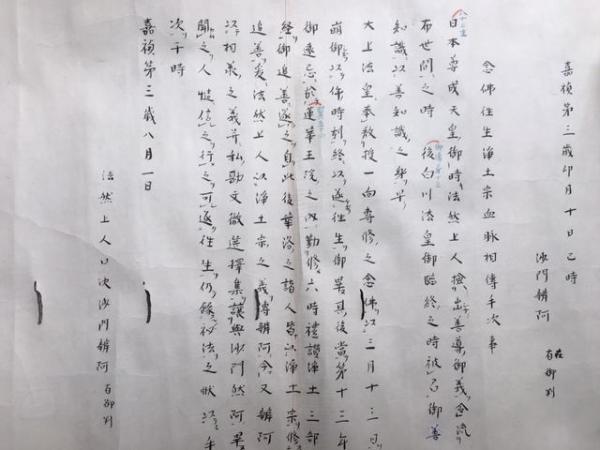 嘉禎第三歳卯月十日巳時
沙門辨阿 在御判
念佛往生浄土宗血脈相傳手次事
八十二主
日本尊成天皇御時法然上人撿出善導御義念流
布世間之時 後白川法皇御臨終之時被召御善
知識以善知識之
大上法皇奉教授一向専修之念佛以三月十三日
崩御以佛時刻終以遂往生御畢其後當第十三年
御遠忌於蓮華王院之内勤修六時禮讃浄土三部
経御追善遂之自此後華洛之諸人皆以浄土宗修
追善爰法然上人以浄土宗之義傳辨阿今又辨阿
以相承之義并私勘文徴選擇集譲與沙門然阿畢
聞之人慥信之行之可遂往生仍録秘法之状以手
次于時
嘉禎第三歳八月一日
法然上人口次沙門辨阿 在御判